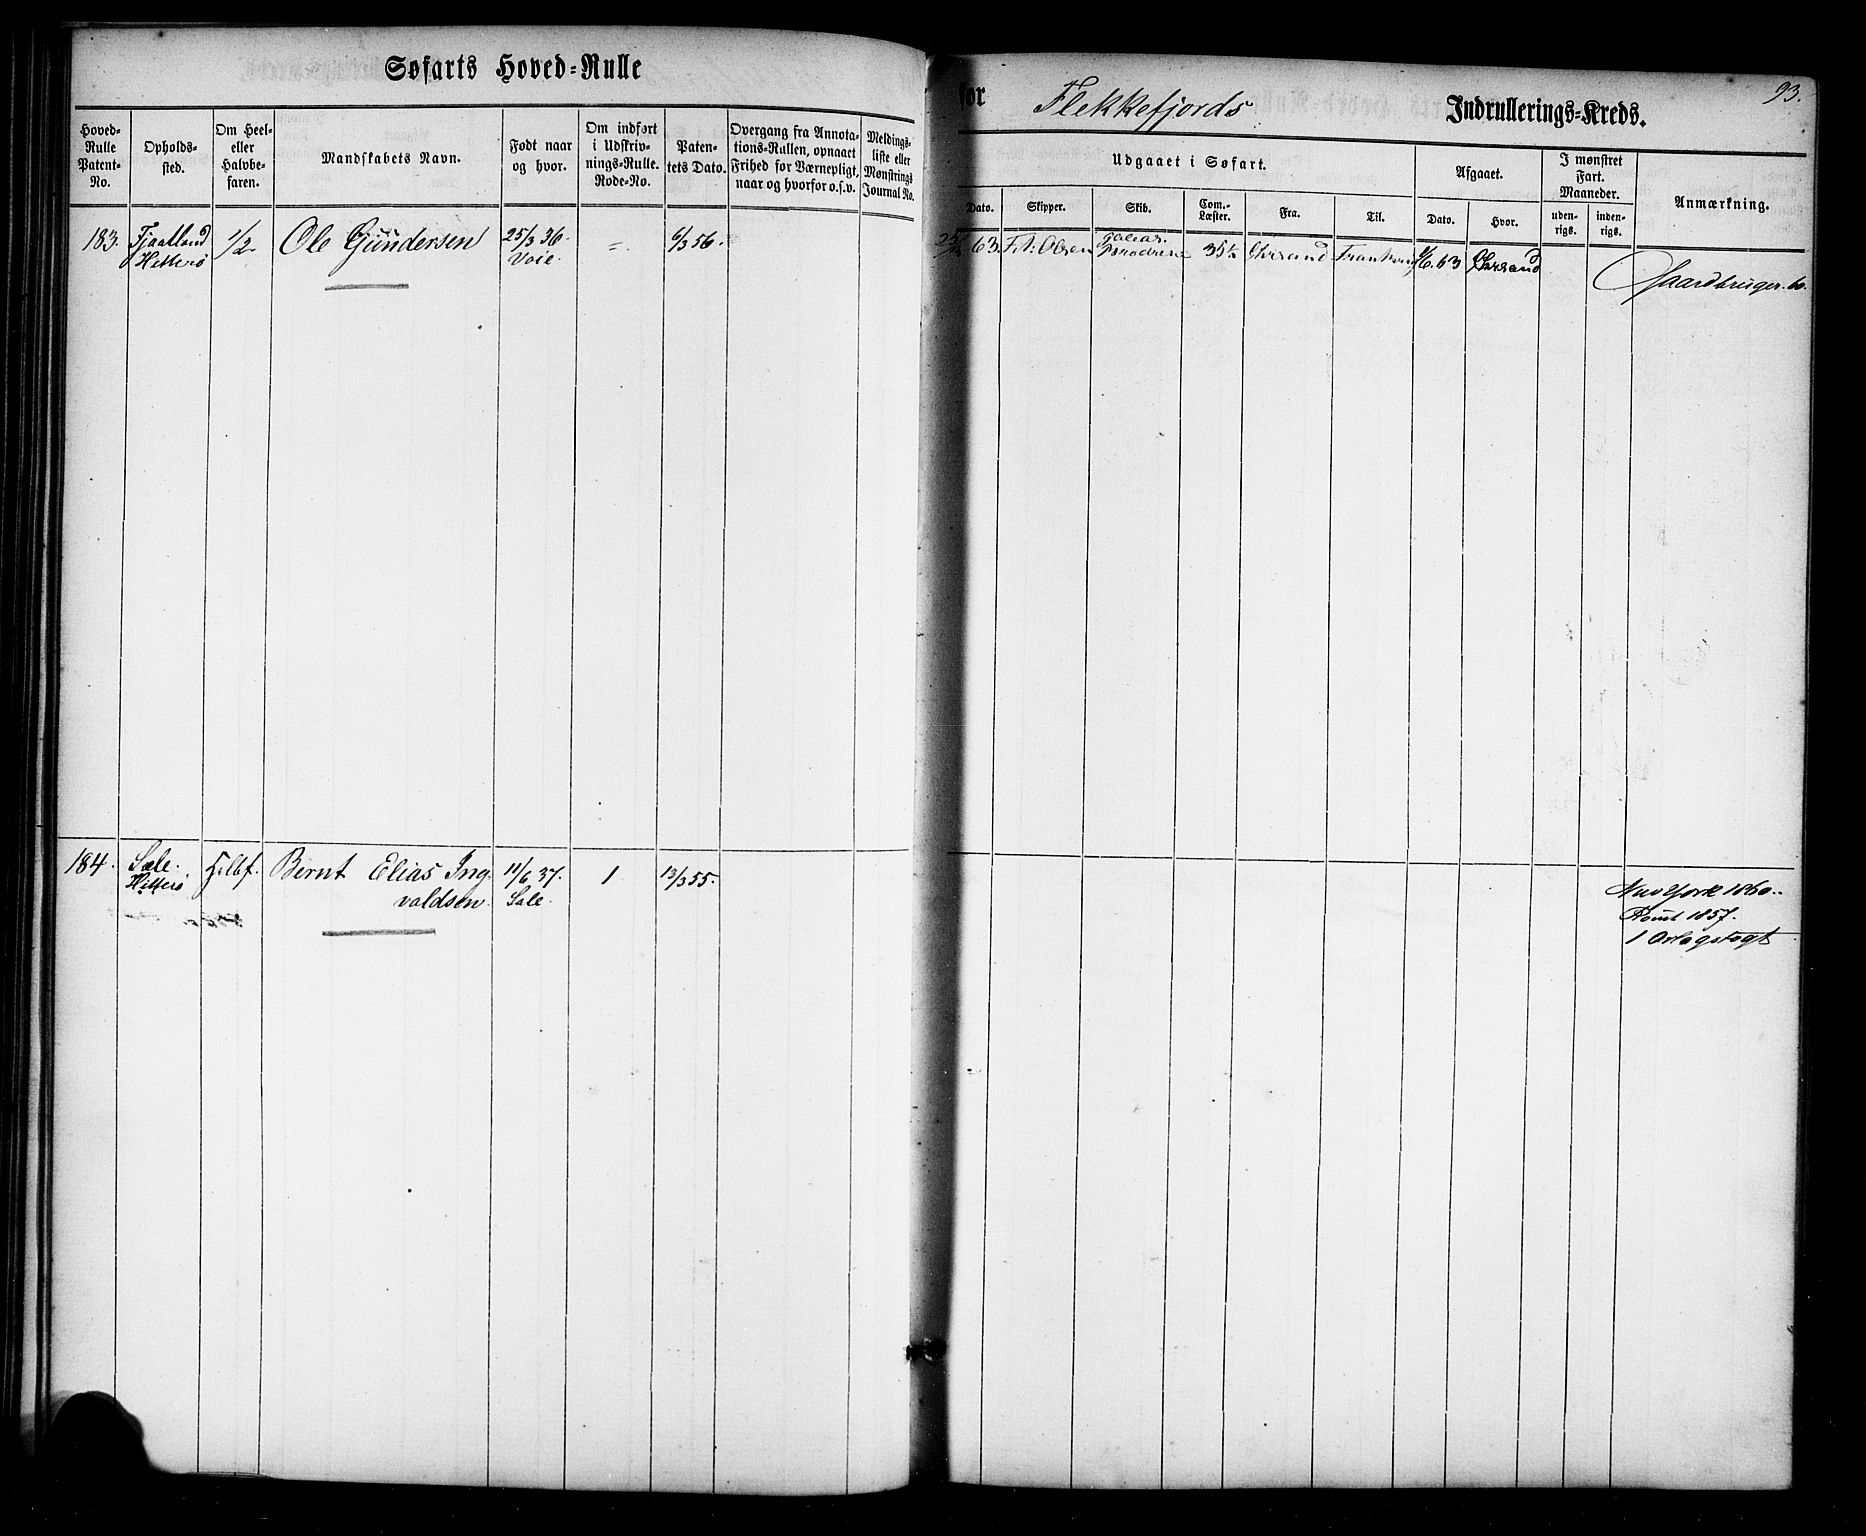 Søfarts Hoved-Rulle
for Flekkefjords Indrullerings-Kreds.
93.
Hoved-Rulle Patent-No.
Opholds-sted.
Om Heel- eller Halvbe-faren.
Mandskabets Navn.
Født naar og hvor.
Om indført i Udskriv-nings-Rulle. Rode-No.
Paten-tets Dato.
Overgang fra Annota-tions-Rullen, opnaaet Frihed for Værnepligt, naar og hvorfor o.s.v.
Meldings-liste eller Mønstrings Journal No.
Udgaaet i Søfart.
Dato.
Skipper.
Skib.
Com.-Læster.
Fra.
Til.
Afgaaet.
Dato.
Hvor.
I mønstret Fart. Maaneder.
uden-rigs.
inden-rigs.
Anmærkning.
183. Fjaalland 1/2 Ole Gundersen 25/3 36. = 6/3 56. 63. Olsen Galeas. 35½ Chrsand 63 Chrsand
Hitterø Voie. Brødrene Gaardbruger.
184. Sæle. Halbf. Bernt Elias Ing 11/6 37. 1 13/3 55. New York 1860.
Hitterø valdsen. Sæle. Rømt 1857.
1 Orlogstogt